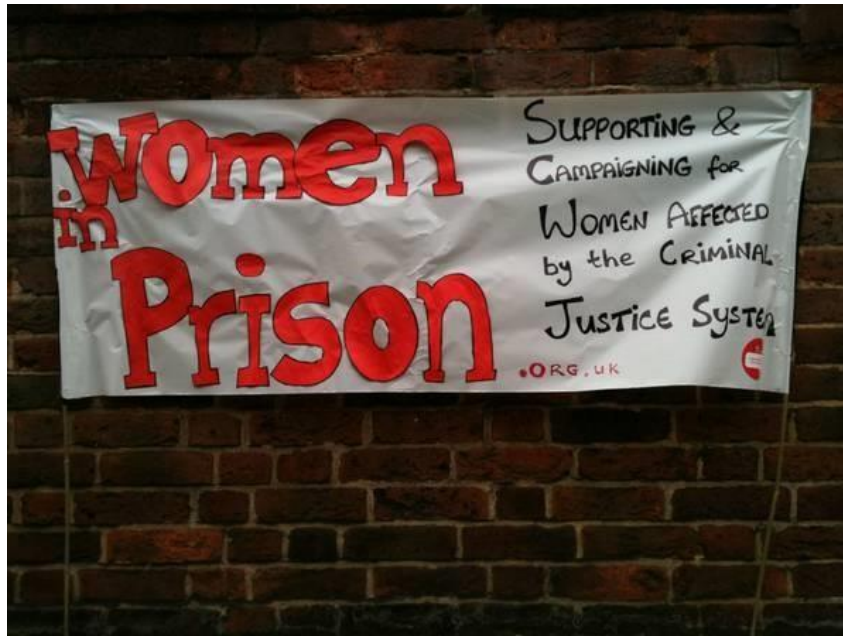 Women
in
Prison
SUPPORTING &
CAMPAiGNiNG for
WOMEN AFFECTED
by the CRiMiNAL
JUSTiCE SYSTEM
.ORG.UK